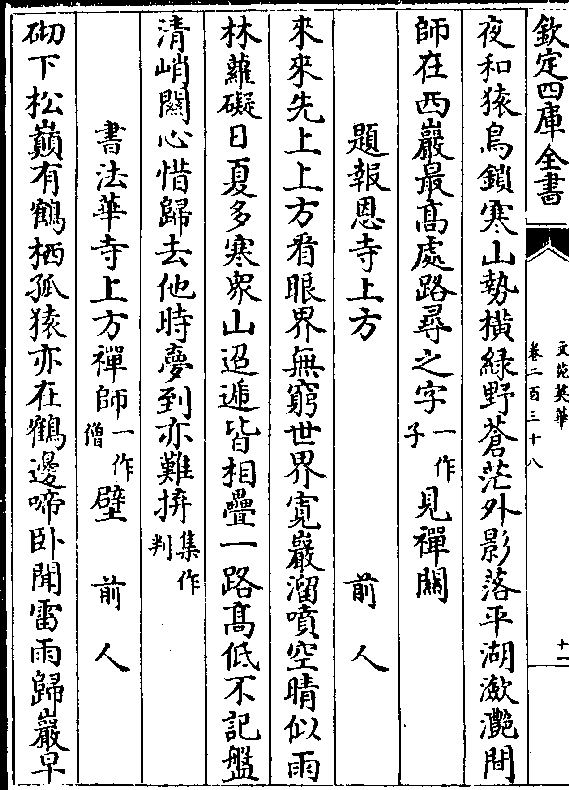 欽定四庫全書
文苑英華
卷二百三十八
十二
夜和猿鳥鎖寒山勢橫綠野蒼茫外影落平湖瀲灔間
師在西巖最高處路尋之字一作子見禪關
題報恩寺上方 前人
來來先上上方看眼界無窮世界寛巖溜噴空晴似雨
林蘿礙日夏多寒衆山迢遞皆相疊一路高低不記盤
清峭關心惜歸去他時夢到亦難拚集作判
書法華寺上方禪師一作僧壁 前人
砌下松巓有鶴栖孤猿亦在鶴邊啼卧聞雷雨歸巖早